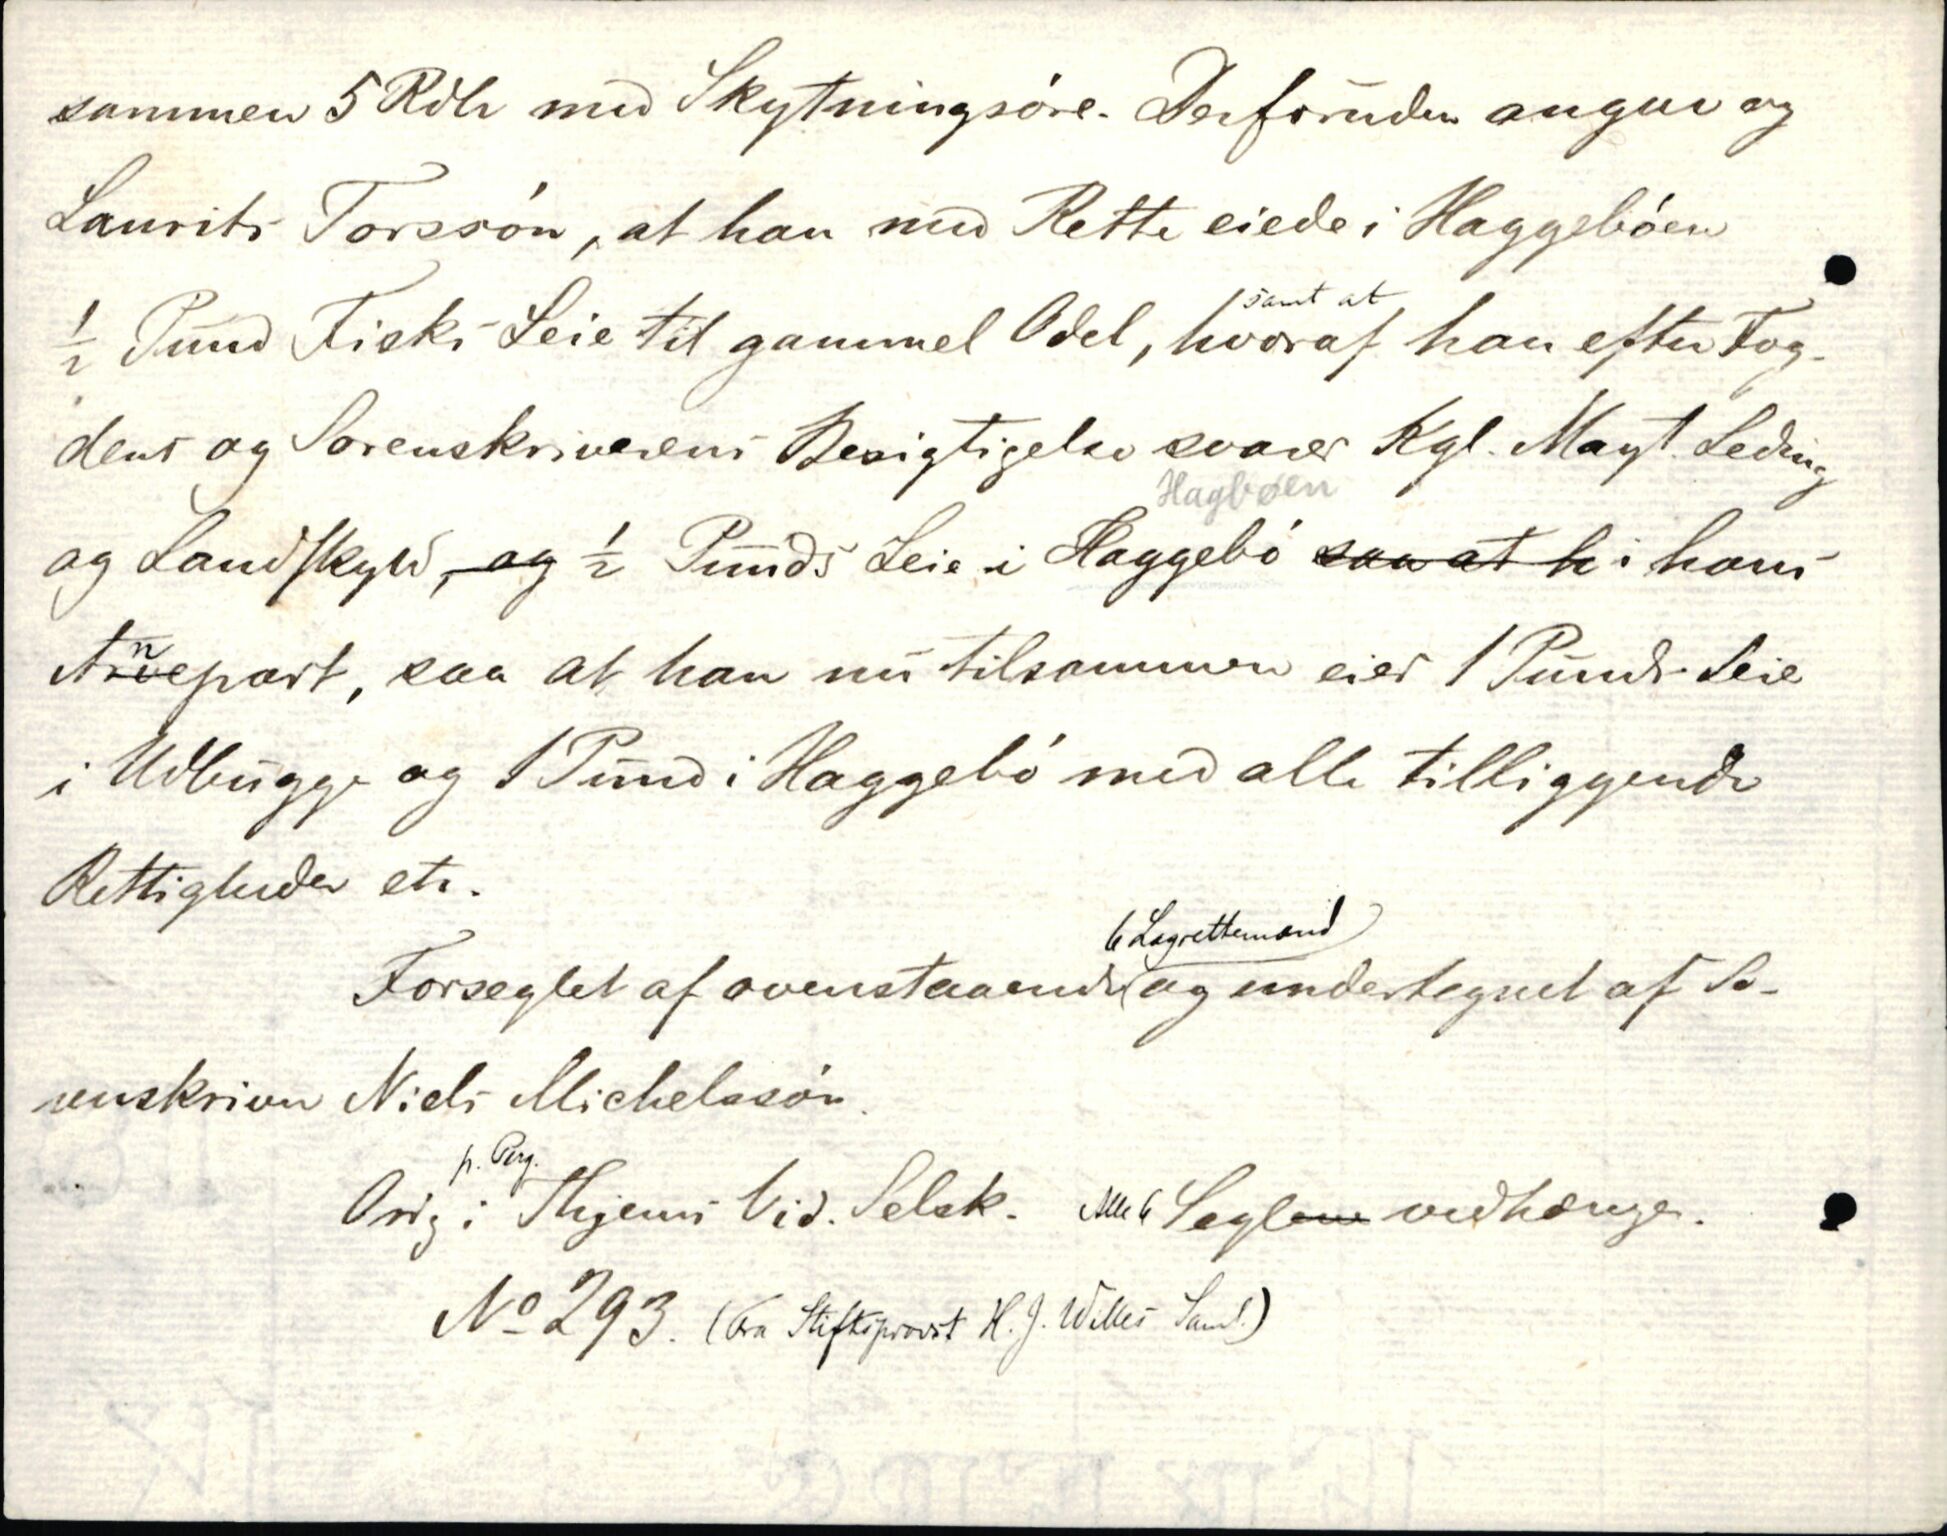 sammen 5 Rdlr med Skytningsöre. Desforuden angav og
Laurits Torssön, at han med Rette eiede i Haggeböen
samt at
½ Pund Fisks Leie til gammel Odel, hvoraf han efter Fog-
dens og Sorenskriverens Besigtigelse svarer Kgl. Mayt. Leding
Hagbøen
og Landskyld, og ½ Punds Leie i Haggebö saa at h i hans
Arvepart, saa at han nu tilsammen eier 1 Punds Leie
i Udbugge og 1 Pund i Haggebö med alle tilliggende
Rettigheder etc.
6 Lagrettemænd
Forseglet af ovenstaaende og undertegnet af So-
renskriver Niels Michelssön.
p. Perg.
Orig i Thjems Vid. Selsk. Alle 6 Seglene vedhænge.
No 293. (fra Stiftsprovst H. J. Willes Saml.)